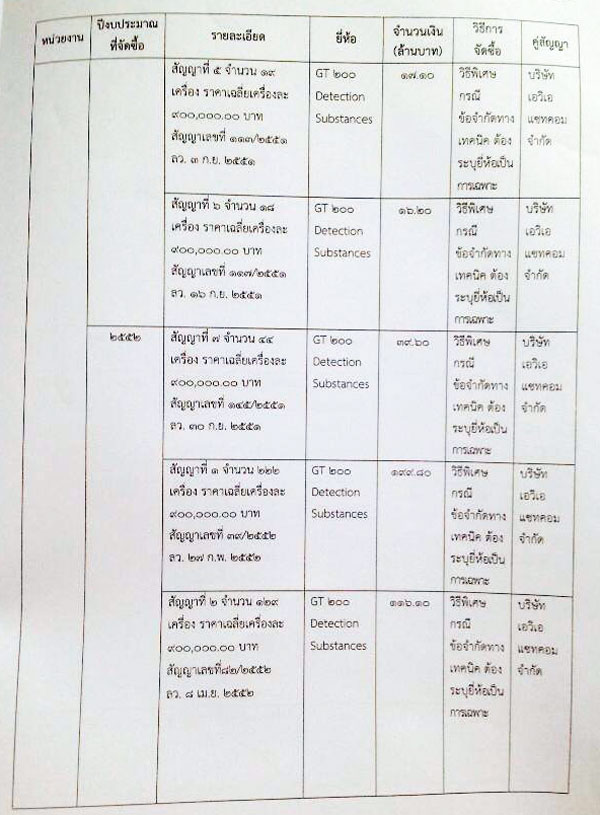 หน่วยงาน
ปีงบประมาณ
ที่จัดซื้อ
รายละเอียด
ยี่ห้อ
จำนวนเงิน
(ล้านบาท)
วิธีการ
จัดซื้อ
คู่สัญญา
สัญญาที่ ๕ จำนวน ๑๙
เครื่อง ราคาเฉลี่ยเครื่องละ
๙๐๐,๐๐๐.๐๐ บาท
สัญญาเลขที่ ๑๑๓/๒๕๕๑
ลว. ๓ ก.ย. ๒๕๕๑
GT ๒๐๐
Detection
Substances
๑๗.๑๐
วิธีพิเศษ
กรณี
ข้อจำกัดทาง
เทคนิค ต้อง
ระบุยี่ห้อเป็น
การเฉพาะ
บริษัท
เอวิเอ
แซทคอม
จำกัด
สัญญาที่ ๖ จำนวน ๑๘
เครื่อง ราคาเฉลี่ยเครื่องละ
๙๐๐,๐๐๐.๐๐ บาท
สัญญาเลขที่ ๑๑๗/๒๕๕๑
ลว. ๑๖ ก.ย. ๒๕๕๑
GT ๒๐๐
Detection
Substances
๑๖.๒๐
วิธีพิเศษ
กรณี
ข้อจำกัดทาง
เทคนิค ต้อง
ระบุยี่ห้อเป็น
การเฉพาะ
บริษัท
เอวิเอ
แซทคอม
จำกัด
๒๕๕๒
สัญญาที่ ๗ จำนวน ๔๔
เครื่อง ราคาเฉลี่ยเครื่องละ
๙๐๐,๐๐๐.๐๐ บาท
สัญญาเลขที่ ๑๔๕/๒๕๕๑
ลว. ๓๐ ก.ย. ๒๕๕๑
GT ๒๐๐
Detection
Substances
๓๙.๖๐
วิธีพิเศษ
กรณี
ข้อจำกัดทาง
เทคนิค ต้อง
ระบุยี่ห้อเป็น
การเฉพาะ
บริษัท
เอวิเอ
แซทคอม
จำกัด
สัญญาที่ ๑ จำนวน ๒๒๒
เครื่อง ราคาเฉลี่ยเครื่องละ
๙๐๐,๐๐๐.๐๐ บาท
สัญญาเลขที่ ๓๙/๒๕๕๒
ลว. ๒๗ ก.พ. ๒๕๕๒
GT ๒๐๐
Detection
Substances
๑๙๙.๘๐
วิธีพิเศษ
กรณี
ข้อจำกัดทาง
เทคนิค ต้อง
ระบุยี่ห้อเป็น
การเฉพาะ
บริษัท
เอวิเอ
แซทคอม
จำกัด
สัญญาที่ ๒ จำนวน ๑๒๙
เครื่อง ราคาเฉลี่ยเครื่องละ
๙๐๐,๐๐๐.๐๐ บาท
สัญญาเลขที่๘๒/๒๕๕๒
ลว. ๘ เม.ย. ๒๕๕๒
GT ๒๐๐
Detection
Substances
๑๑๖.๑๐
วิธีพิเศษ
กรณี
ข้อจำกัดทาง
เทคนิค ต้อง
ระบุยี่ห้อเป็น
การเฉพาะ
บริษัท
เอวิเอ
แซทคอม
จำกัด